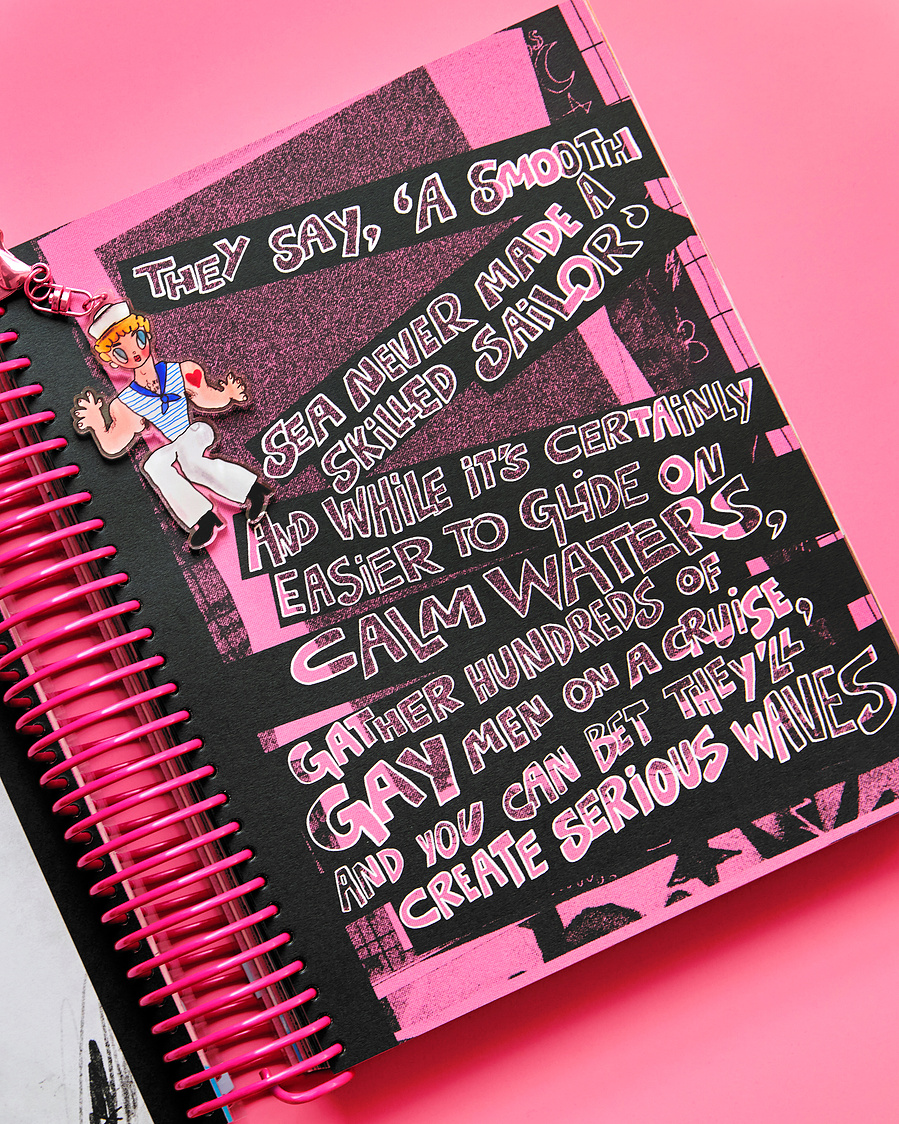 THEY SAY, ‘A SMOOTH
SEA NEVER MADE A
SKILLED SAiLOR.’
AND WHiLE iT'S CERTAiNLY
EASiER TO GLiDE ON
CALM WATERS,
GATHER HUNDREDS OF
GAY MEN ON A CRUiSE,
AND YOU CAN BET THEY'LL
CREATE SERiOUS WAVES